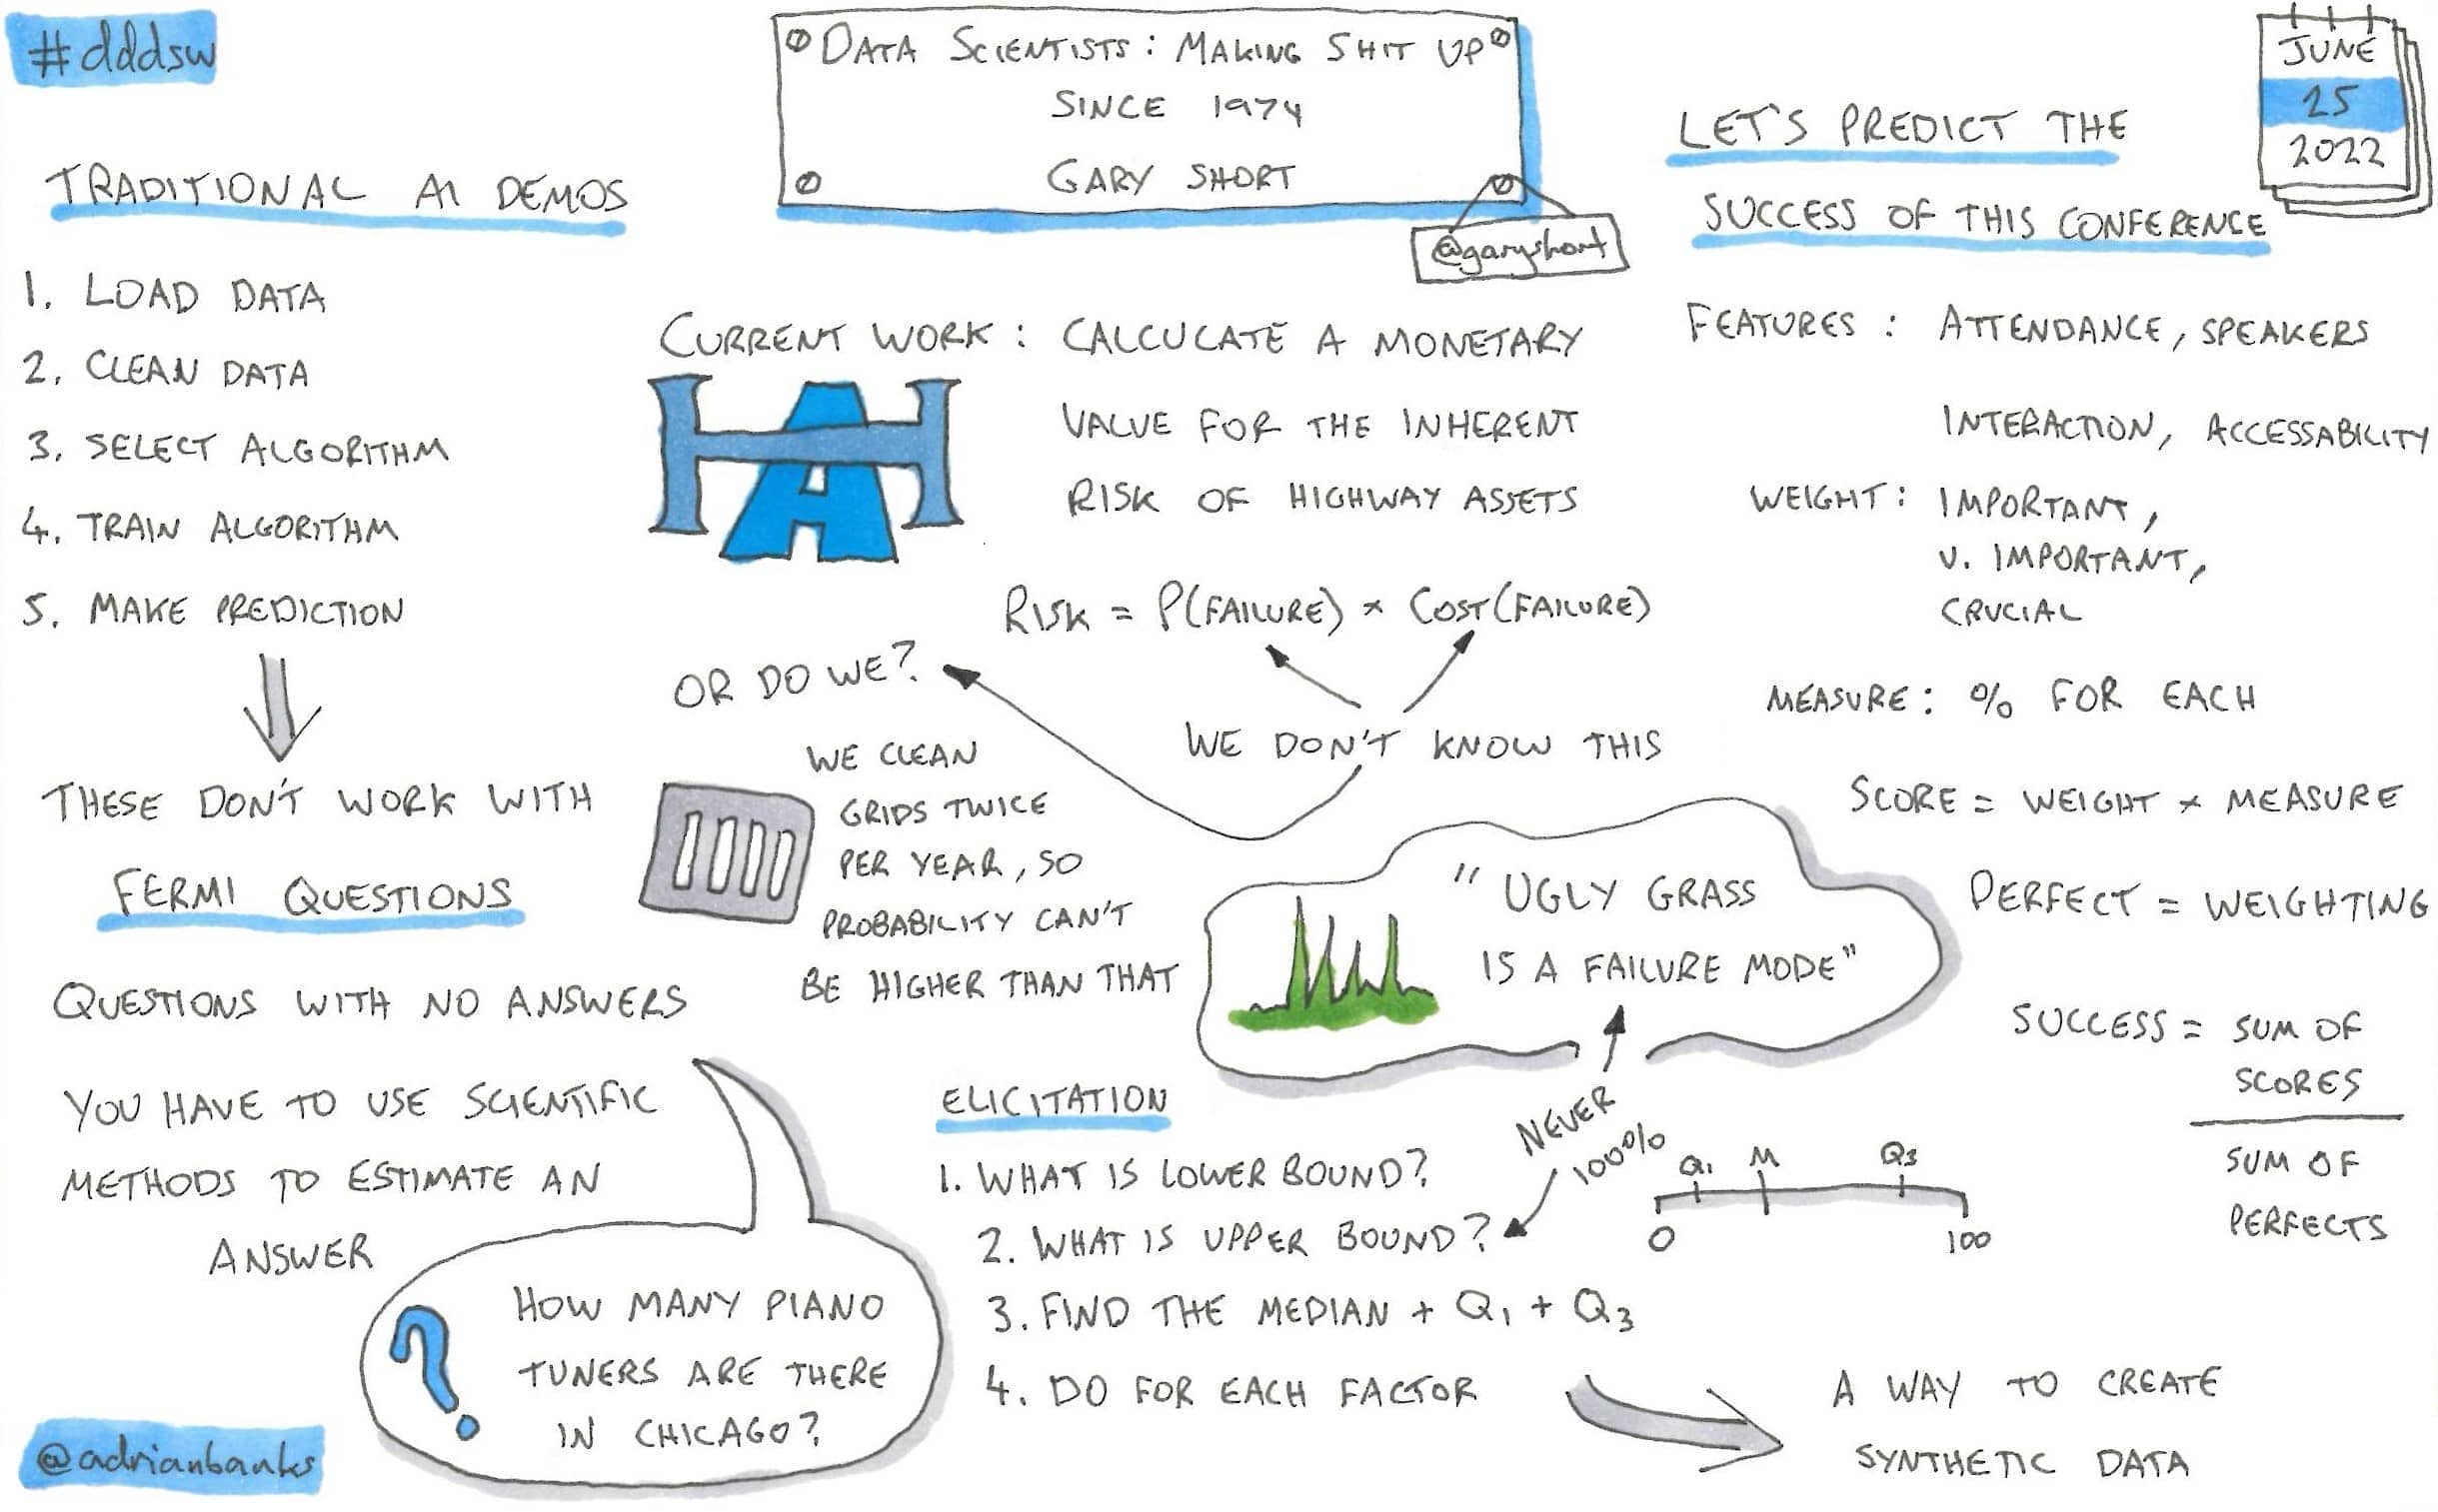 #dddsw
DATA SCIENTISTS: MAKING SHIT UP
SINCE 1974
GARY SHORT
@garyshort
JUNE
25
2022
TRADITIONAL AI DEMOS
1. LOAD DATA
2. CLEAN DATA
3. SELECT ALGORITHM
4. TRAIN ALGORITHM
5. MAKE PREDICTION
THESE DON'T WORK WITH
FERMI QUESTIONS
QUESTIONS WITH NO ANSWERS
YOU HAVE TO USE SCIENTIFIC
METHODS TO ESTIMATE AN
ANSWER
HOW MANY PIANO
TUNERS ARE THERE
IN CHICAGO?
?
@adrianbanks
CURRENT WORK: CALCULATE A MONETARY
VALUE FOR THE INHERENT
RISK OF HIGHWAY ASSETS
HA
RISK = P(FAILURE) × COST(FAILURE)
WE DON'T KNOW THIS
OR DO WE?
WE CLEAN
GRIDS TWICE
PER YEAR, SO
PROBABILITY CAN'T
BE HIGHER THAN THAT
"UGLY GRASS
IS A FAILURE MODE"
ELICITATION
1. WHAT IS LOWER BOUND?
2. WHAT IS UPPER BOUND?
3. FIND THE MEDIAN + Q1 + Q3
4. DO FOR EACH FACTOR
NEVER
100%
Q1 M Q3
0 100
A WAY TO CREATE
SYNTHETIC DATA
LET'S PREDICT THE
SUCCESS OF THIS CONFERENCE
FEATURES: ATTENDANCE, SPEAKERS
INTERACTION, ACCESSABILITY
WEIGHT: IMPORTANT,
V. IMPORTANT,
CRUCIAL
MEASURE: % FOR EACH
SCORE = WEIGHT × MEASURE
PERFECT = WEIGHTING
SUCCESS = SUM OF
SCORES
SUM OF
PERFECTS